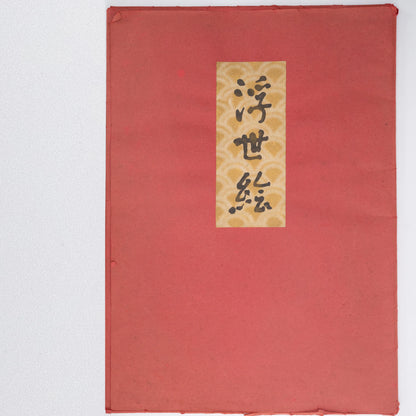 浮世絵